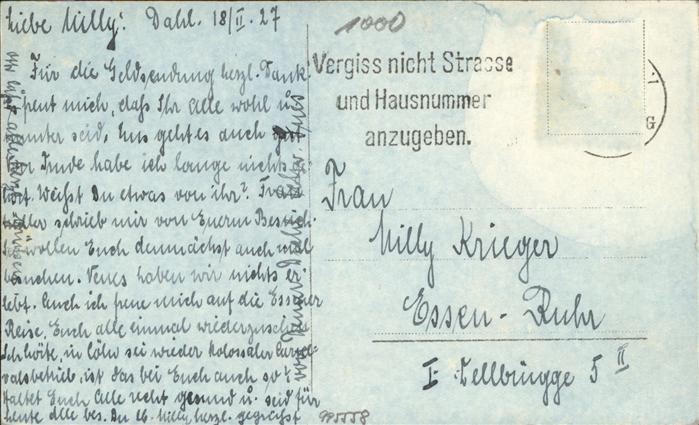 Liebe Milly! Dahl. 18/II. 27
Für die Geldsendung herzl. Dank.
freut mich, daß Ihr alle wohl u.
munter seid, Uns geht es auch gut
habe ich lange nichts
Weißt Du etwas von ihr? Frau
schrieb mir von Euerm Besuch.
wollen Euch demnächst auch mal
besuchen. Neues haben wir nichts er-
lebt. Auch ich freue mich auf die Essener
Reise, Euch alle einmal wiederzusehen
Ich hörte, in Cöln sei wieder kolossaler Carne-
valsbetrieb, ist das bei Euch auch so?
haltet Euch alle recht gesund u. seid für
heute alle bes. Du lb. Milly, herzl. gegrüßt
1000
Vergiss nicht Strasse
und Hausnummer
anzugeben.
G
Frau
Milly Krieger
Essen-Ruhr
I. Dellbrügge 5 II